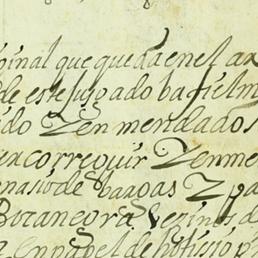 ginal que queda en el ar
de este juzgado ba fielm
do Y enmendados
corregir Y enme
nasio de bargas Y pa
Bocanegra Vezinos d
en papel de